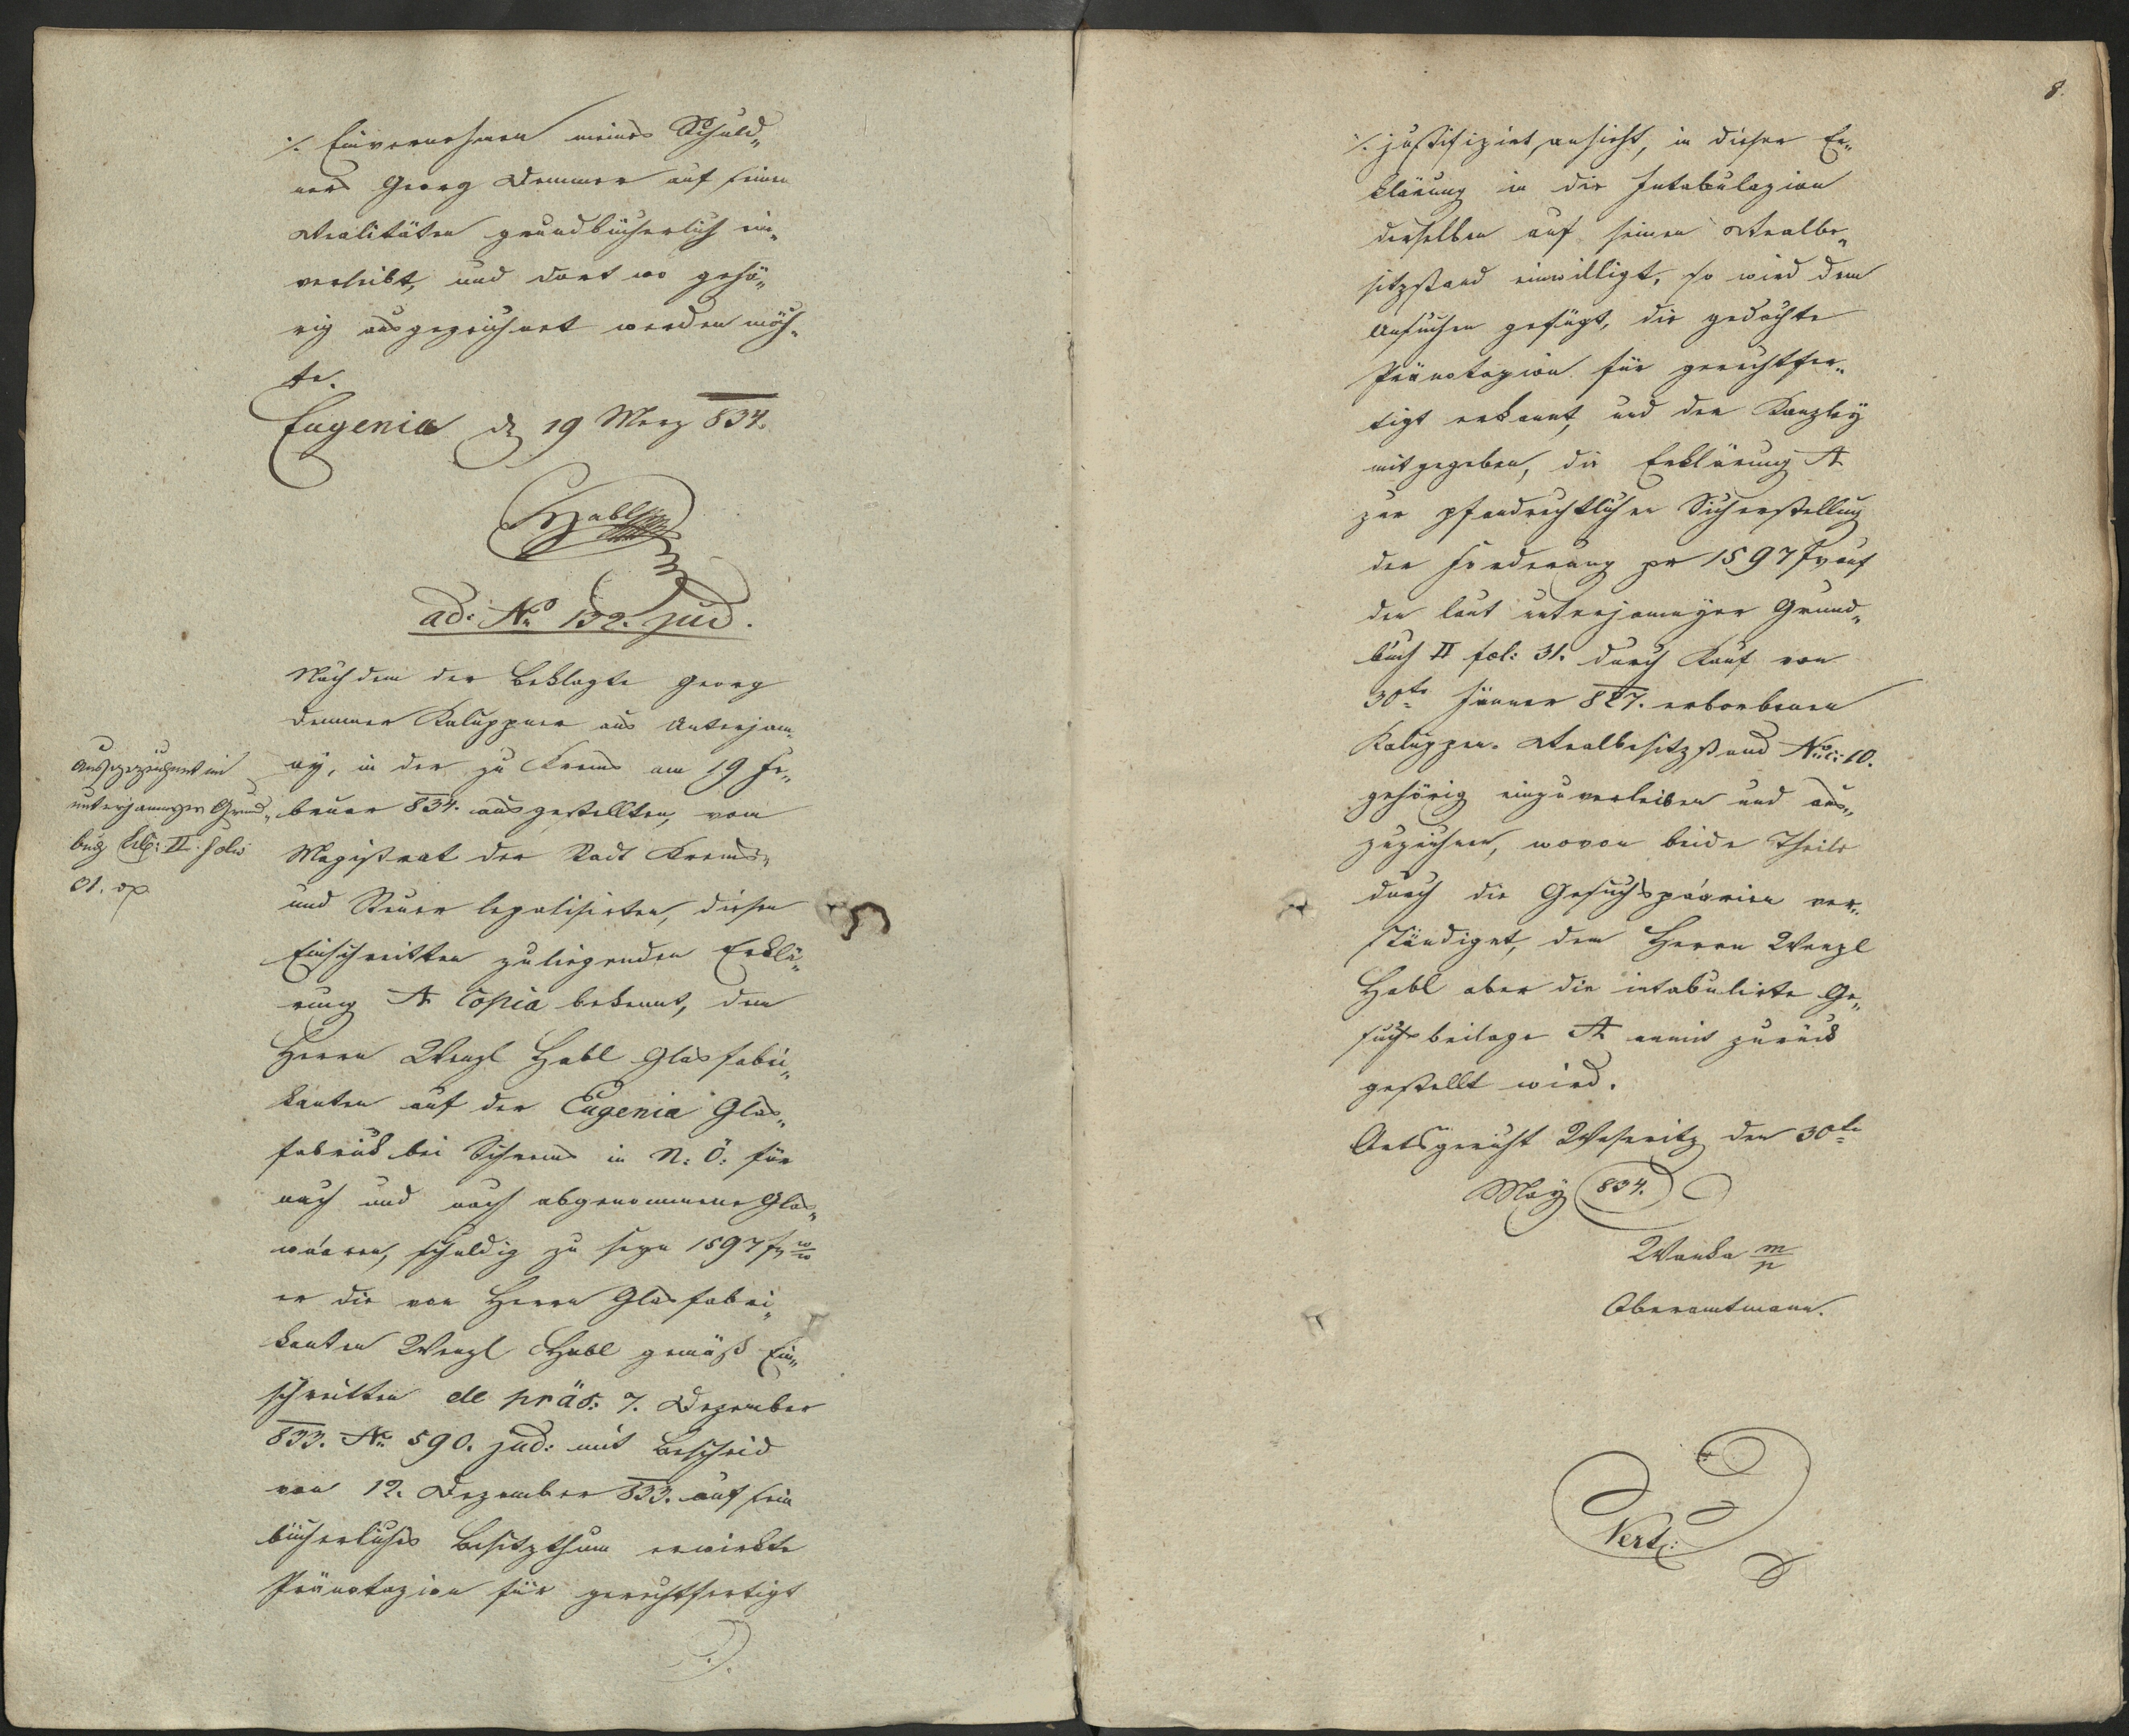 ./. Einvernehmen meines Schuld„
ners Georg Demmer auf seinen
Realitäten grundbücherlich ein„
verleibt, und dort wo gehö„
rig ausgezeichnet werden möch„
te.
Eugenia d 19 Merz 834.
Habl
ad: No 132. jud.
Nachdem der Beklagte Georg
Demmer Kaluppner aus Unterjam„
ny, in der zu Krems am 19 Fe„
bruar 834. ausgestellten, vom
Magistrat der Stadt Krems„
und Steuer legalisirten, diesen
Einschreitten zuliegenden Erklä„
rung A Copia bekennt, dem
Herrn Wenzl Habl Glasfabri„
kanten auf der Eugenia Glas„
fabrick bei Schrems in N: Ö: für
nach und nach abgenommene Glas„
wáaren, schuldig zu seyn 1597 f ww
er die von Herrn Glasfabri„
kanten Wenzl Habl gemäß Ein„
schreitten de präs: 7. Dezember
833. No 590. jud: mit Bescheid
von 12. Dezember 833. auf sein
bücherliches Besitzthum erwirkte
Pränotazion für gerechtfertigt
Ausgezeichnet im
unterjamnyer Grund„
buch Lib: II. folio
31.
8.
./. justifizirt, ansieht, in dieser Er„
klärung in die Intabulazion
derselben auf seinen Realbe„
sitzstand einwilligt, so wird dem
Ansuchen gefügt, die gedachte
Pränotazion für gerechtfer„
tigt erkannt, und der Kanzley
mitgegeben, die Erklärung A
zur pfandrechtlichen Sicherstellung
der Forderung pr 1597 f auf
den laut unterjamnyer Grund„
buch II fol: 31. durch Kauf von
30te Jänner 827. erworbenen
Kaluppen. Realbesitzstand No c: 10.
gehörig einzuverleiben und aus„
zuzeichnen, wovon beide Theile
durch die Gesuchspáarien ver„
ständiget, dem Herrn Wenzl
Habl aber die intabulirte Ge„
suchsbeilage A anmit zurück
gestellt wird.
Amtsgericht Weseritz den 30te
May 834.
Wanka m/p
Oberamtmann.
Vert: